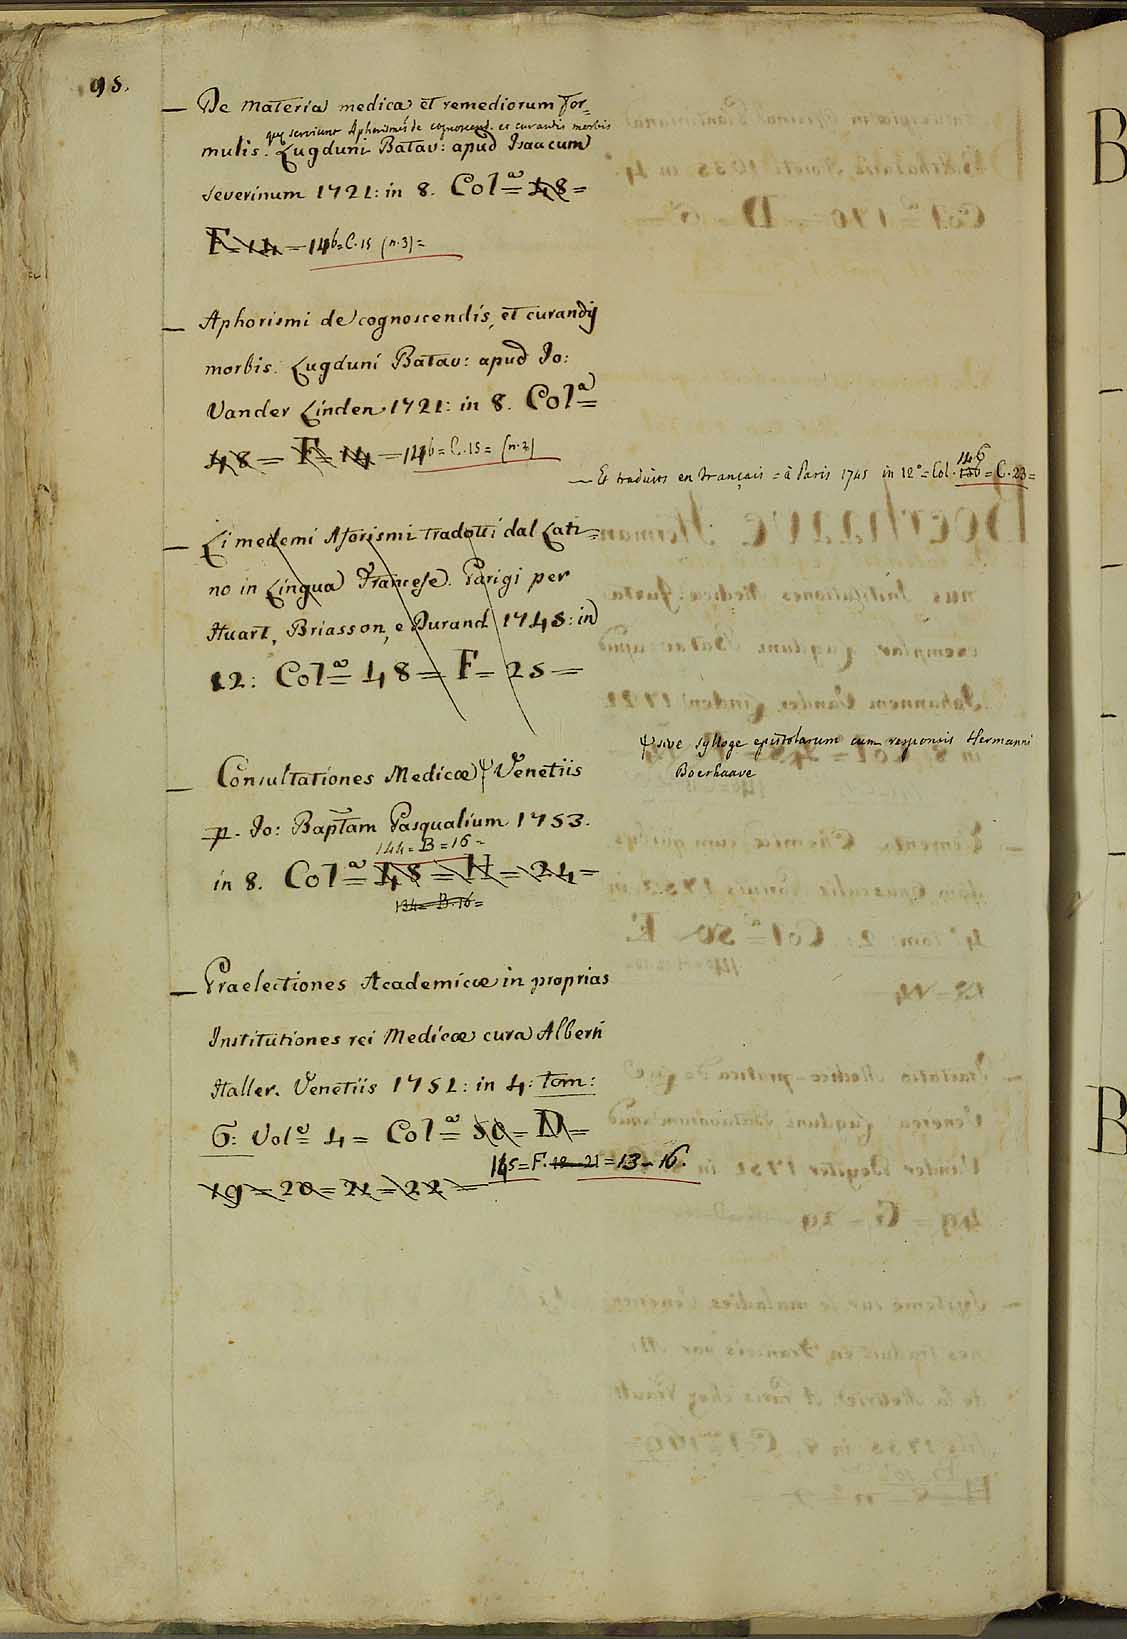 95.
— De materia medica et remediorum for=
quę serviunt Aphorismis de cognoscend. et curandis morbis
mulis. Lugduni Batav: apud Isaacum
Severinum 1721: in 8. Colª= 48=
F=14=14b=C.15 (n.3)=
— Aphorismi de cognoscendis, et curandij
morbis. Lugduni Batav: apud Jo:
Vander Linden 1721: in 8. Colª=
48= F= 14=14b=C.15= (n.2)
— Et traduits en français = à Paris 1745 in 12°=Col. 136 146=C.23=
— Li medemi Aforismi tradotti dal Lati=
no in Lingua Francese. Parigi per
Huart, Briasson, e Durand 1745: in
12: Colª= 48= F= 25=
ψ sive sylloge epistolarum cum responsis Hermanni
Boerhaave
— Consultationes Medicæ ψ Venetiis
p. Jo: Baptam Pasqualium 1753.
144=B=16=
in 8. Colª= 48= H= 24=
134= B.16=
— Praelectiones Academicæ in proprias
Institutiones rei Medicæ cura Alberti
Haller. Venetiis 1751: in 4: tom:
6: Volⁱ= 4= Colª= 50= D=
145=F.18-21=13-16.
19=20=21=22=
B
B